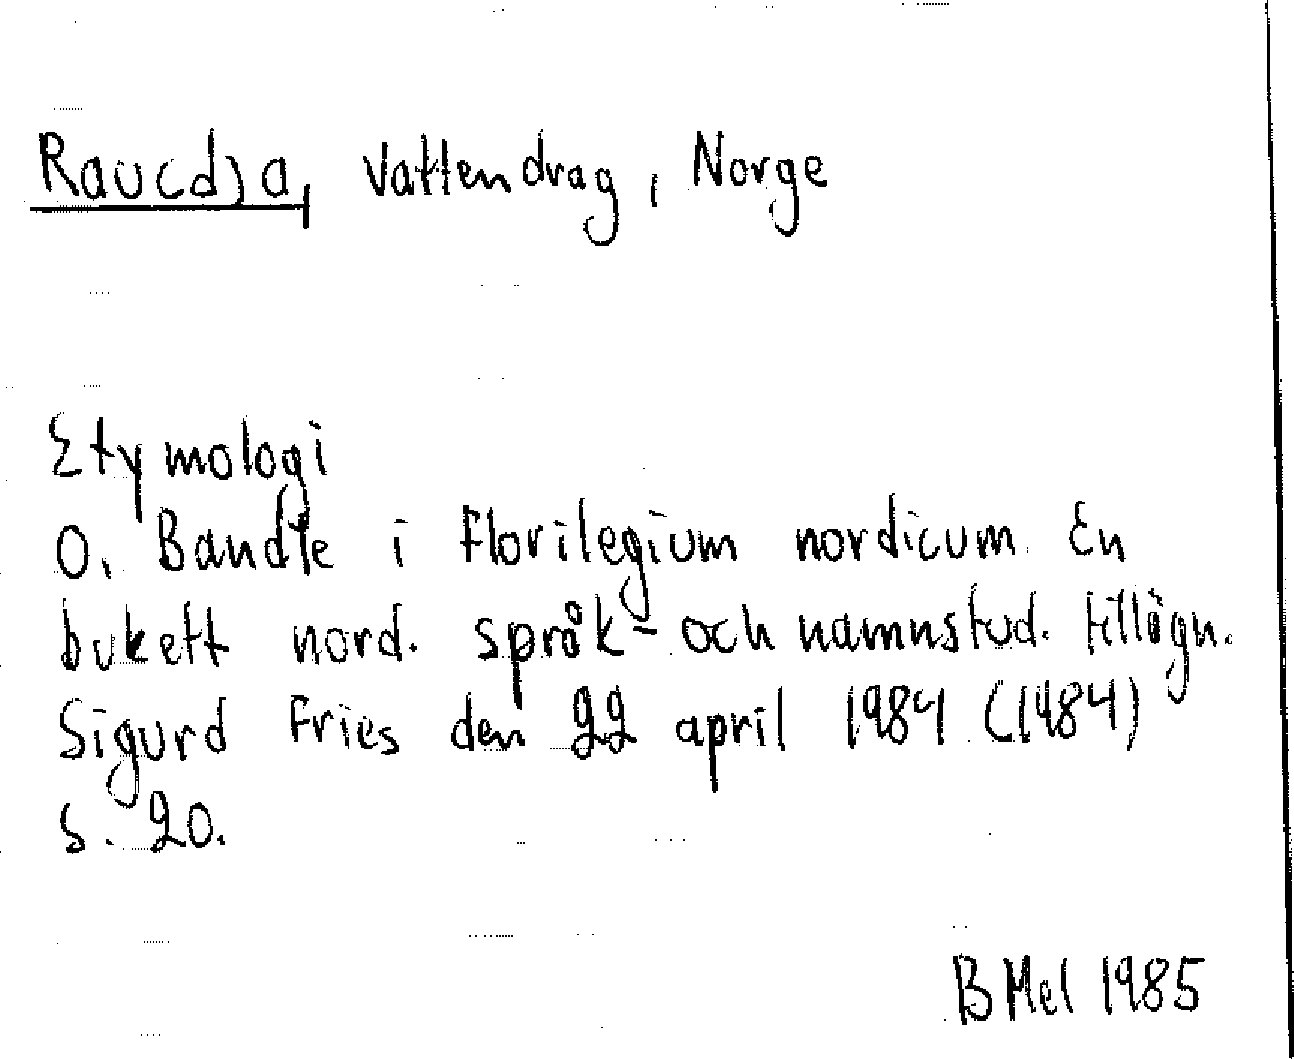 Rau(d)a, Vattendrag, Norge
Etymologi
O. Bandle i Florilegium nordicum. En
bukett nord. språk- och namnstud. tillägn.
Sigurd Fries den 22 april 1984 (1984)
s. 20.
B Mel 1985